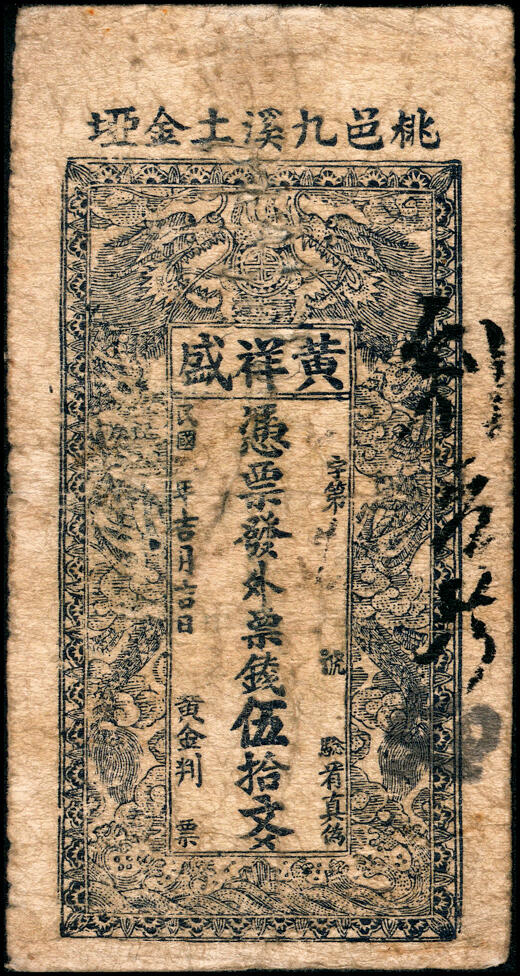 桃邑九溪土金垭
黃祥盛
字第 號 驗看真偽
憑票發外票錢伍拾文
民國 年吉月吉日 黃金判 票